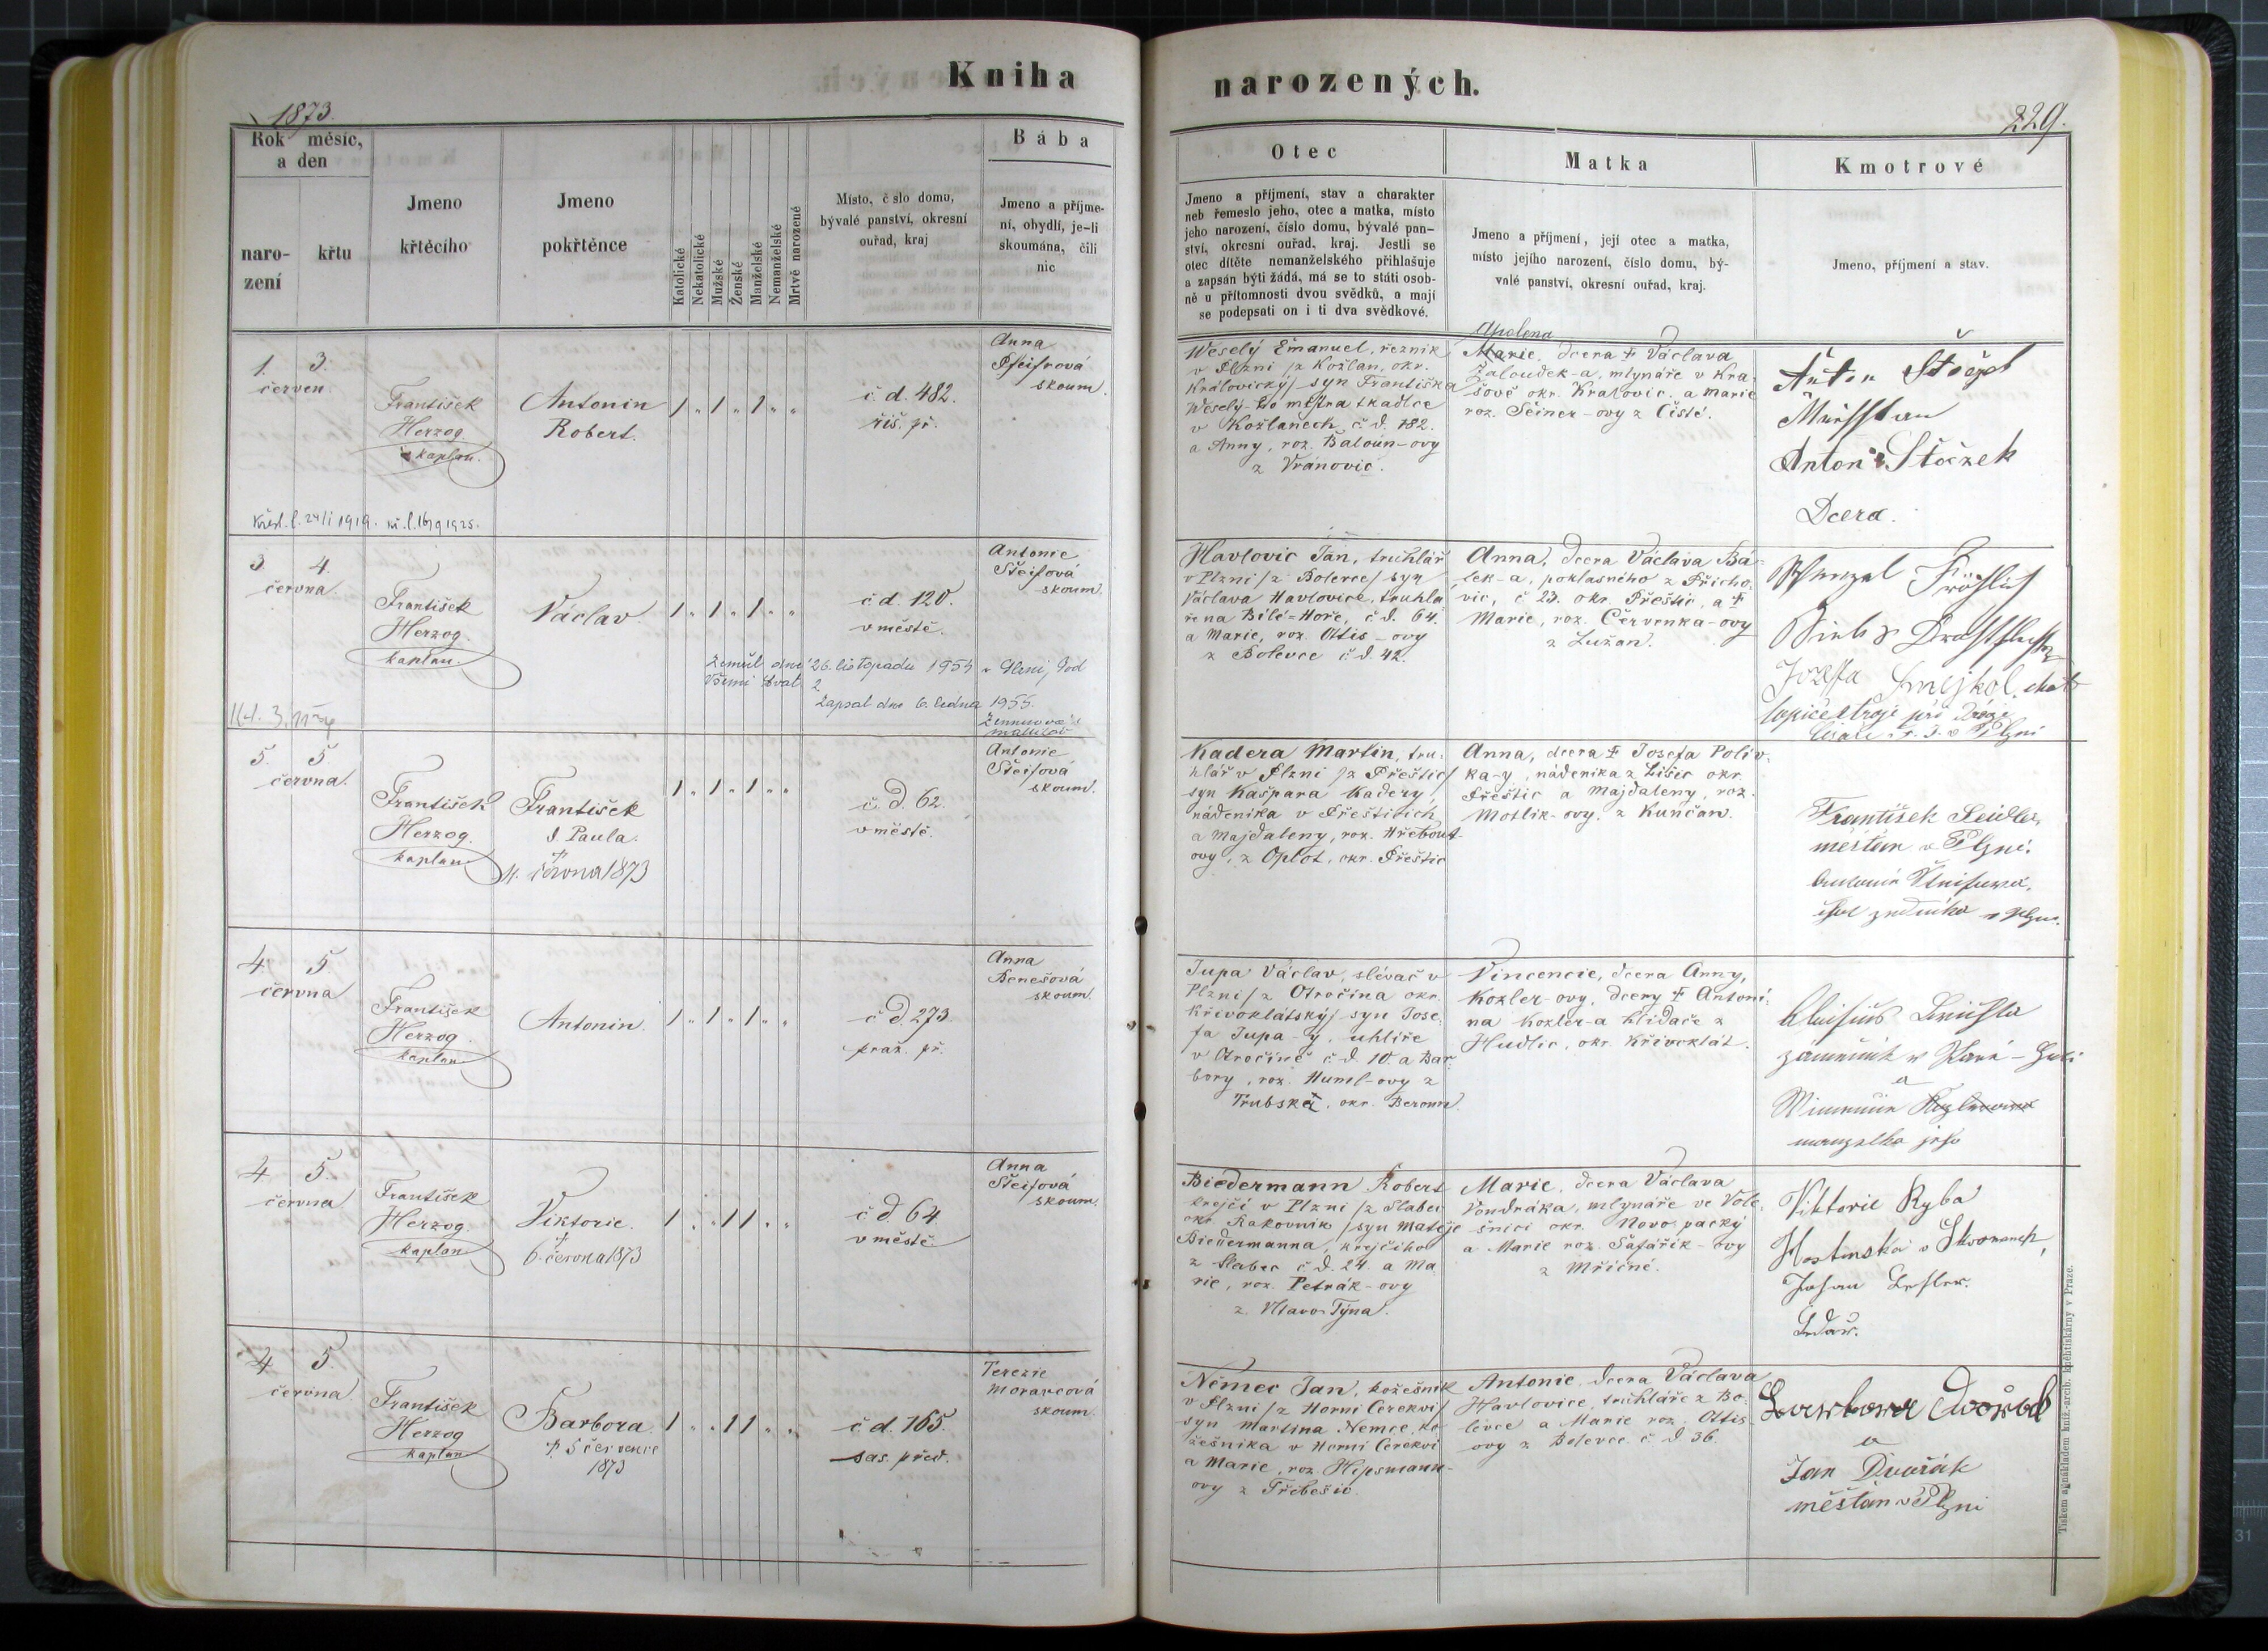 Kniha
narozených.
1873.
229.
Rok měsíc,
a den
naro-
zení
křtu
Jmeno
křtěcího
Jmeno
pokřtěnce
Katolické
Nekatolické
Mužské
Ženské
Manželské
Nemanželské
Mrtvě narozené
Místo, č slo domu,
bývalé panství, okresní
ouřad, kraj
Bába
Jmeno a příjme-
ní, obydlí, je-li
skoumána, čili
nic
Otec
Jmeno a příjmení, stav a charakter
neb řemeslo jeho, otec a matka, místo
jeho narození, číslo domu, bývalé pan-
ství, okresní ouřad, kraj. Jestli se
otec dítěte nemanželského přihlašuje
a zapsán býti žádá, má se to státi osob-
ně u přítomnosti dvou svědků, a mají
se podepsati on i ti dva svědkové.
Matka
Jmeno a příjmení, její otec a matka,
místo jejího narození, číslo domu, bý-
valé panství, okresní ouřad, kraj.
Kmotrové
Jmeno, příjmení a stav.
1. 3.
červen.
František
Herzog
kaplan.
Antonin
Robert.
1 „ 1 „ 1 „ „
č. d. 482.
řiš. př.
Anna
Pfeifrová
skoum.
Křest. l. 24/1 1919. kř. l. 16/9 1925.
Weselý Emanuel, řezník
v Plzni /z Kožlan, okr.
Královický/ syn Františka
Weselý-ho mistra tkadlce
v Kožlanech, č. d. 182.
a Anny, roz. Baloun-ovy
z Vranovic.
Apolena
Marie, dcera † Václava
Žaloudek-a, mlynáře v Kra-
šově okr. Kralovic. a Marie
roz. Seiner-ovy z Čisté.
Anton Štoček
Anton Štoczek
Dcera.
3. 4.
června.
František
Herzog.
kaplan.
Václav
1 „ 1 „ 1 „ „
č d. 120.
v městě.
Antonie
Šteifová
skoum.
Zemřel dne 26. listopadu 1954 v Plzni, Pod
Všemi Svat. 2
Zapsal dne 6. ledna 1955.
Havlovic Jan, truhlář
v Plzni /z Bolevce/ syn
Václava Havlovice, truhlá
ře na Bílé-Hoře, č. d. 64.
a Marie, roz. Ottis-ovy
z Bolevce č. d. 42.
Anna, dcera Václava Bá-
lek-a, poklasného z Přicho-
vic, č 23. okr. Přeštic, a †
Marie, roz. Červenka-ovy
z Lužan.
Wenzel Fröhlich
Jozefa Smejkol,
5. 5
června.
František
Herzog.
kaplan
František
d Paula.
†
11. června 1873
1 „ 1 „ 1 „ „
č. d. 62.
v městě.
Antonie
Šteifová
skoum.
Kadera Martin, tru-
hlář v Plzni /z Přeštic/
syn Kašpara Kadery,
nádeníka v Přešticích
a Majdaleny, roz. Hřebout-
ovy, z Oplot, okr. Přeštic
Anna, dcera † Josefa Polív-
ka-y, nádeníka z Lišic okr.
Přeštic a Majdaleny, roz.
Motlik-ovy. z Kunčan.
František Seidler
měšťan v Plzni.
4. 5
června
František
Herzog.
kaplan
Antonin.
1 „ 1 „ 1 „ „
č d. 273.
praž. př.
Anna
Benešová
skoum.
Jupa Václav, slévač v
Plzni /z Otročína okr.
Křivoklátský/ syn Jose-
fa Jupa-y, uhlíře
v Otročíně č. d. 10. a Bar-
bory, roz. Huml-ovy z
Trubska, okr. Beroun.
Vincencie, dcera Anny,
Kozler-ovy, dcery † Antoní-
na Kozler-a hlídače z
Hudlic, okr. Křivoklát.
a
4 5.
června
František
Herzog.
kaplan
Viktorie.
†
6. června 1873
1 „ „ 1 1 „ „
č d 64
v městě.
Anna
Šteifová
skoum.
Biedermann Robert
krejčí v Plzni /z Slabec
okr. Rakovník /syn Matěje
Biedermanna, krejčího
z Slabec č. d. 24. a Ma
rie, roz. Petrák-ovy
z Vltavo Týna.
Marie, dcera Václava
Vondráka, mlynáře ve Vole-
šnici okr. Novo packý
a Marie roz. Šafářík-ovy
z Mříčné.
Viktorie Ryba
Hostinská v Skvrnanech,
4 5
června
František
Herzog
kaplan
Barbora.
† 5 července
1873
1 „ „ 1 1 „ „
č d. 165.
sas. před.
Terezie
Moravcová
skoum.
Němec Jan, kožešník
v Plzni /z Horní Cerekvi/
syn Martina Němce, ko-
žešníka v Horní Cerekvi
a Marie, roz. Hipsmann-
ovy z Třebešic.
Antonie, dcera Václava
Havlovice, truhláře z Bo-
levce a Marie roz. Ottis
ovy z Bolevce č d 36.
Barbora Dvořak
a
Jan Dvořák
měšťan v Plzni
Tiskem a nákladem kníž.-arcib. knihtiskárny v Praze.